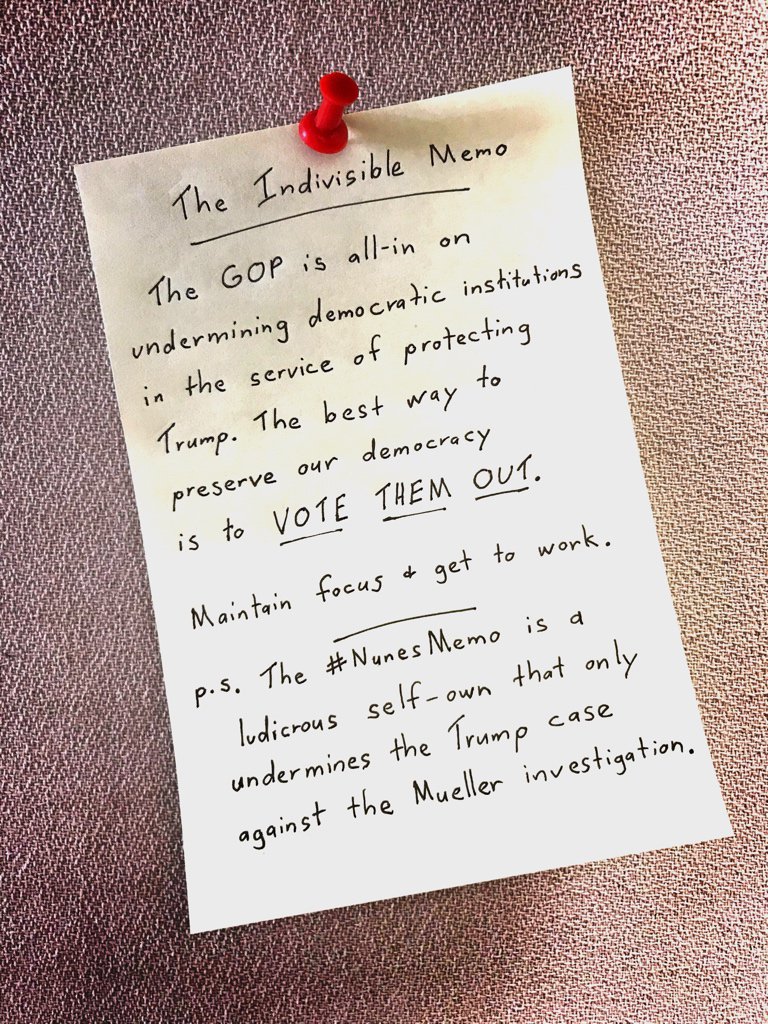 The Indivisible Memo
The GOP is all-in on
undermining democratic institutions
in the service of protecting
Trump. The best way to
preserve our democracy
is to VOTE THEM OUT.
Maintain focus & get to work.
p.s. The #NunesMemo is a
ludicrous self-own that only
undermines the Trump case
against the Mueller investigation.